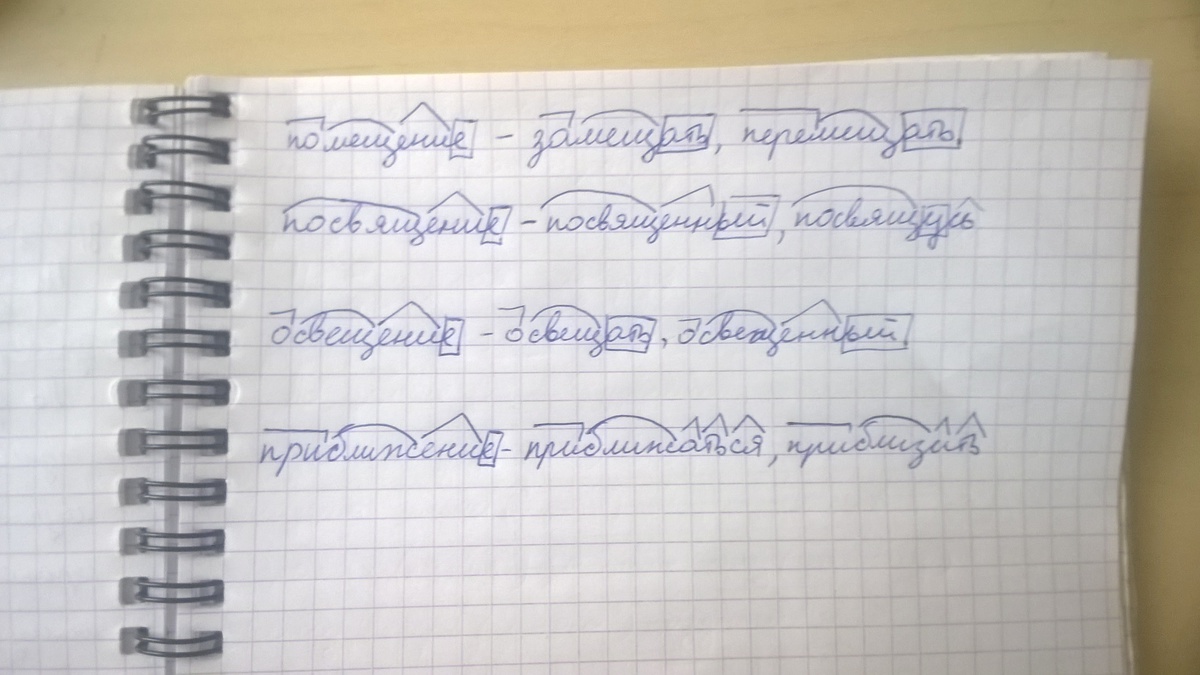 помещение - замещать, перемещать
посвящение - посвященный, посвящусь
освещение - освещать, освещенный
приближение - приближаться, приблизить